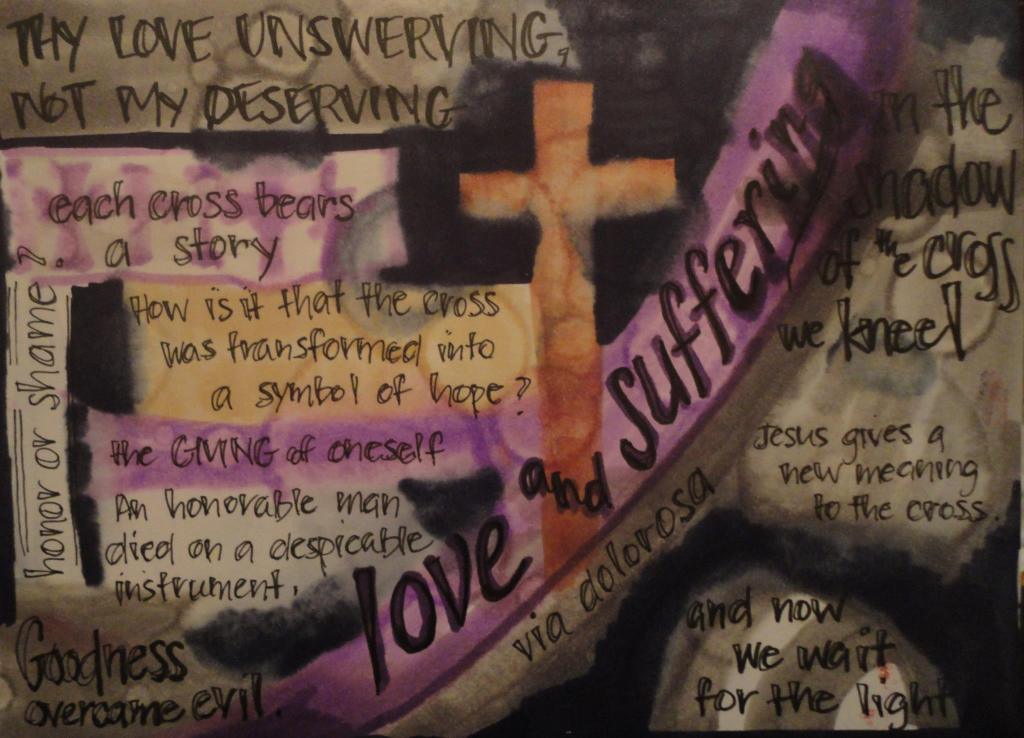 THY LOVE UNSWERVING,
NOT MY DESERVING
each cross bears
a story
honor or shame?
How is it that the cross
was transformed into
a symbol of hope?
the GIVING of oneself
An honorable man
died on a despicable
instrument.
Goodness
overcame evil.
love and suffering
via dolorosa
in the
shadow
of the cross
we kneel
Jesus gives a
new meaning
to the cross.
and now
we wait
for the light